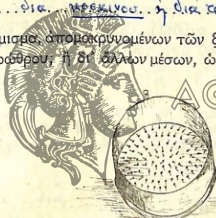 δια κοσκίνου.. ἢ δια
μισμα, ἀπομακρυνομένων τῶν
ρώθρου; ἢ δι' ἄλλων μέσων,